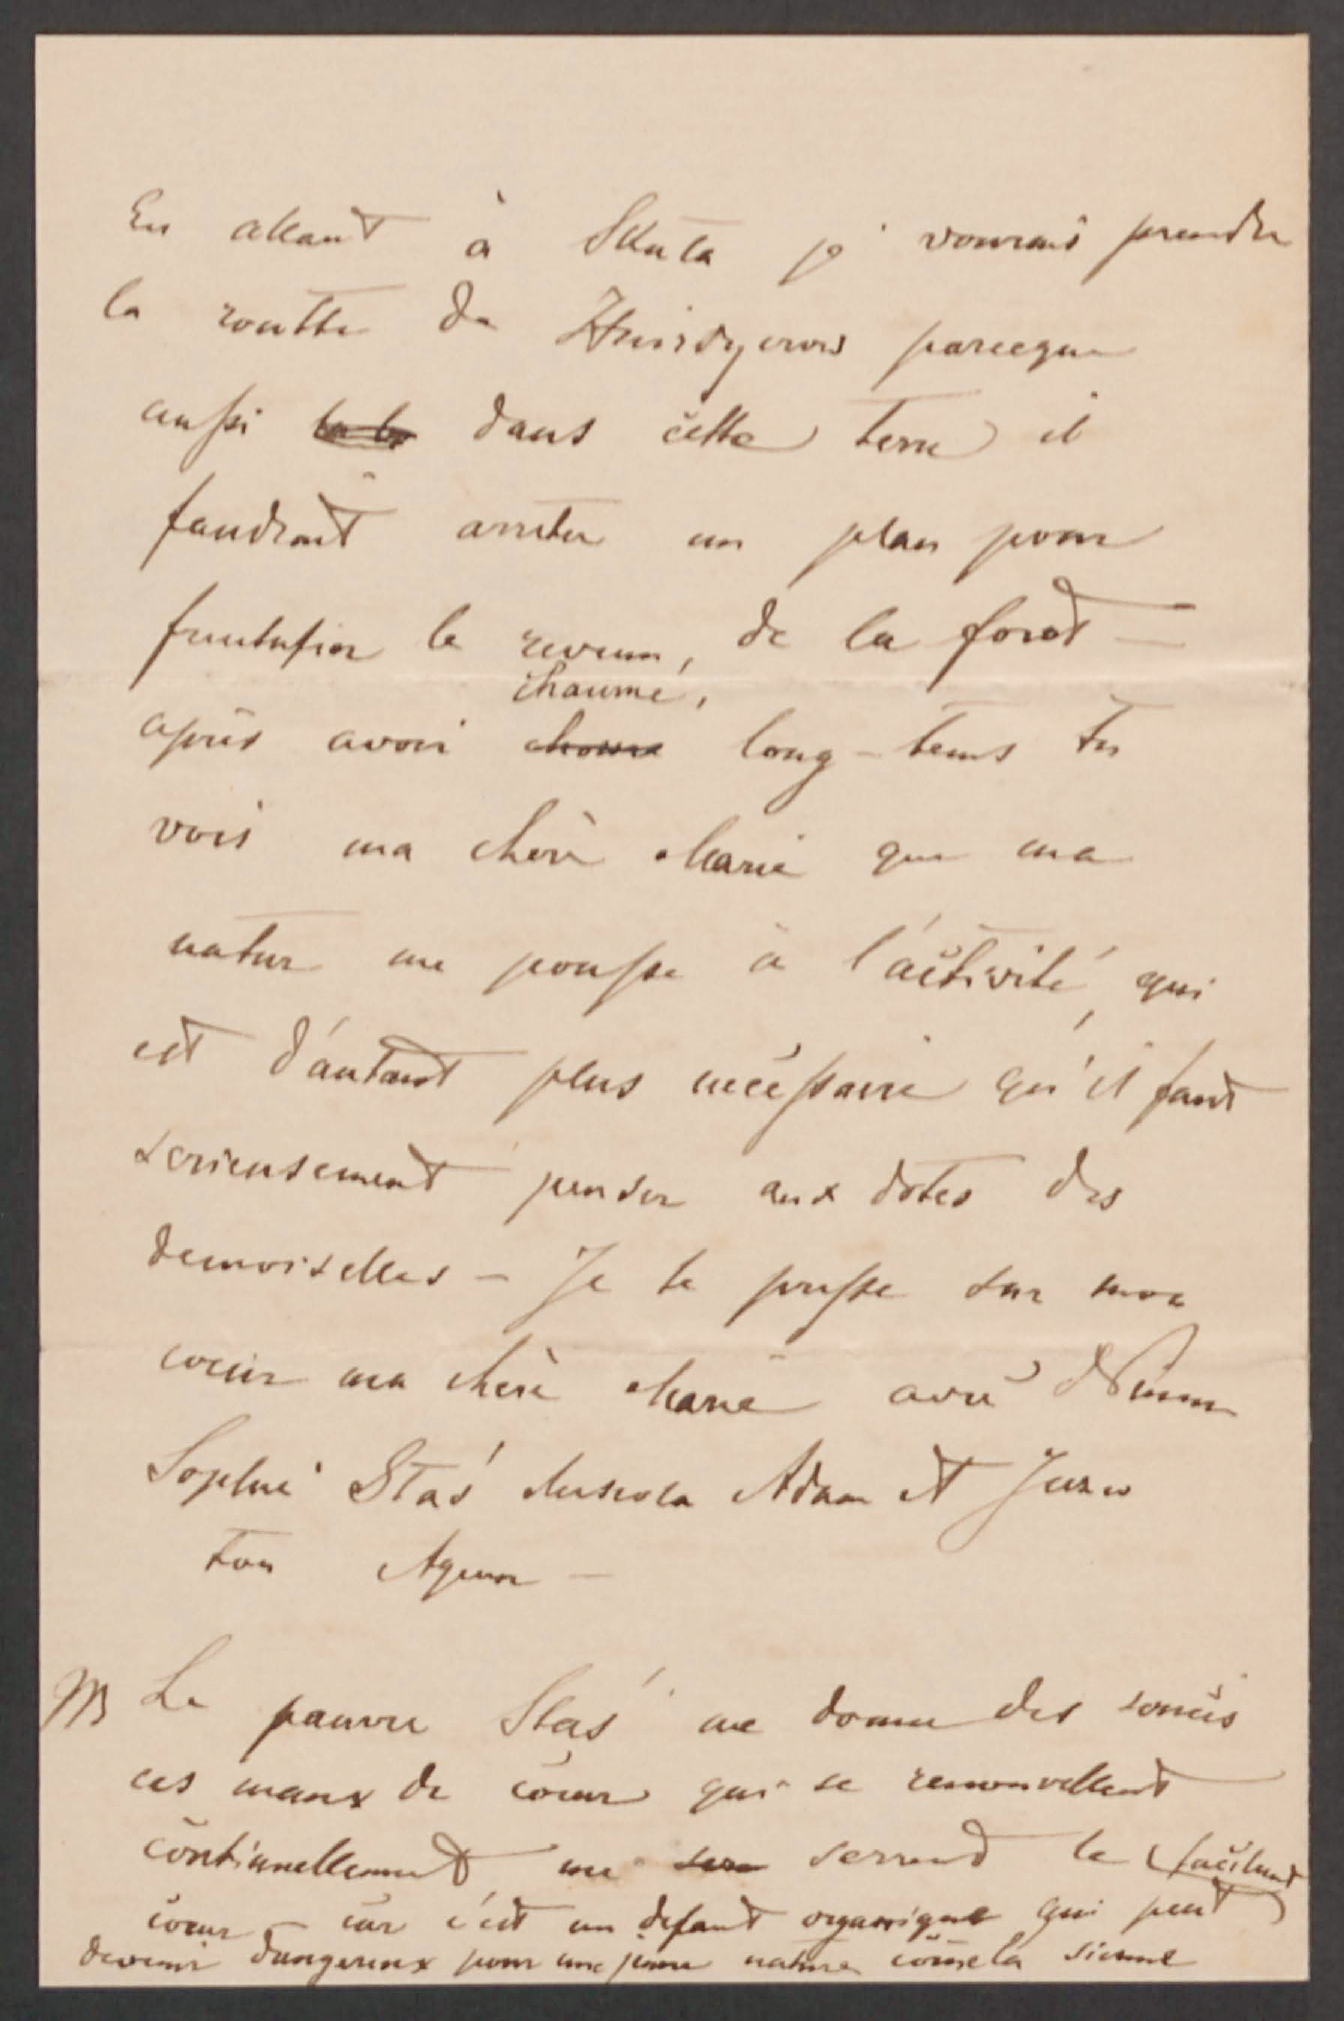 En allant à Skala je vourais prendre
la routte de parceque
aussi dans cette terre il
faudrait arreter un plan pour
le revenu, de la foret —
chaumé,
après avoir long-tems tu
vois ma chère Marie que ma
natur me pousse à l'activité, qui
est d'autant plus nécessaire qu'il faut
serieusement penser aux dotes des
demoiselles — Je te presse sur mon
coeur ma chère Marie avec
Sophie Staś Adam et Juzio
ton Agenor —
NB Le pauvre Staś me donne des soucis
ces maux de coeur qui se renouvellent
continuellement me serrent le
coeur — car c'est un defaut organique qui peut facilement
devenir dangereux pour une jeune nature comme la sienne